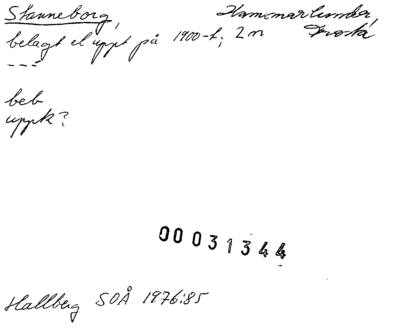 Stanneborg, Hammarlunda,
belagt el uppt på 1900-t; 2 n Frosta
---
beb
uppk?
00031344
Hallberg SOÅ 1976:85